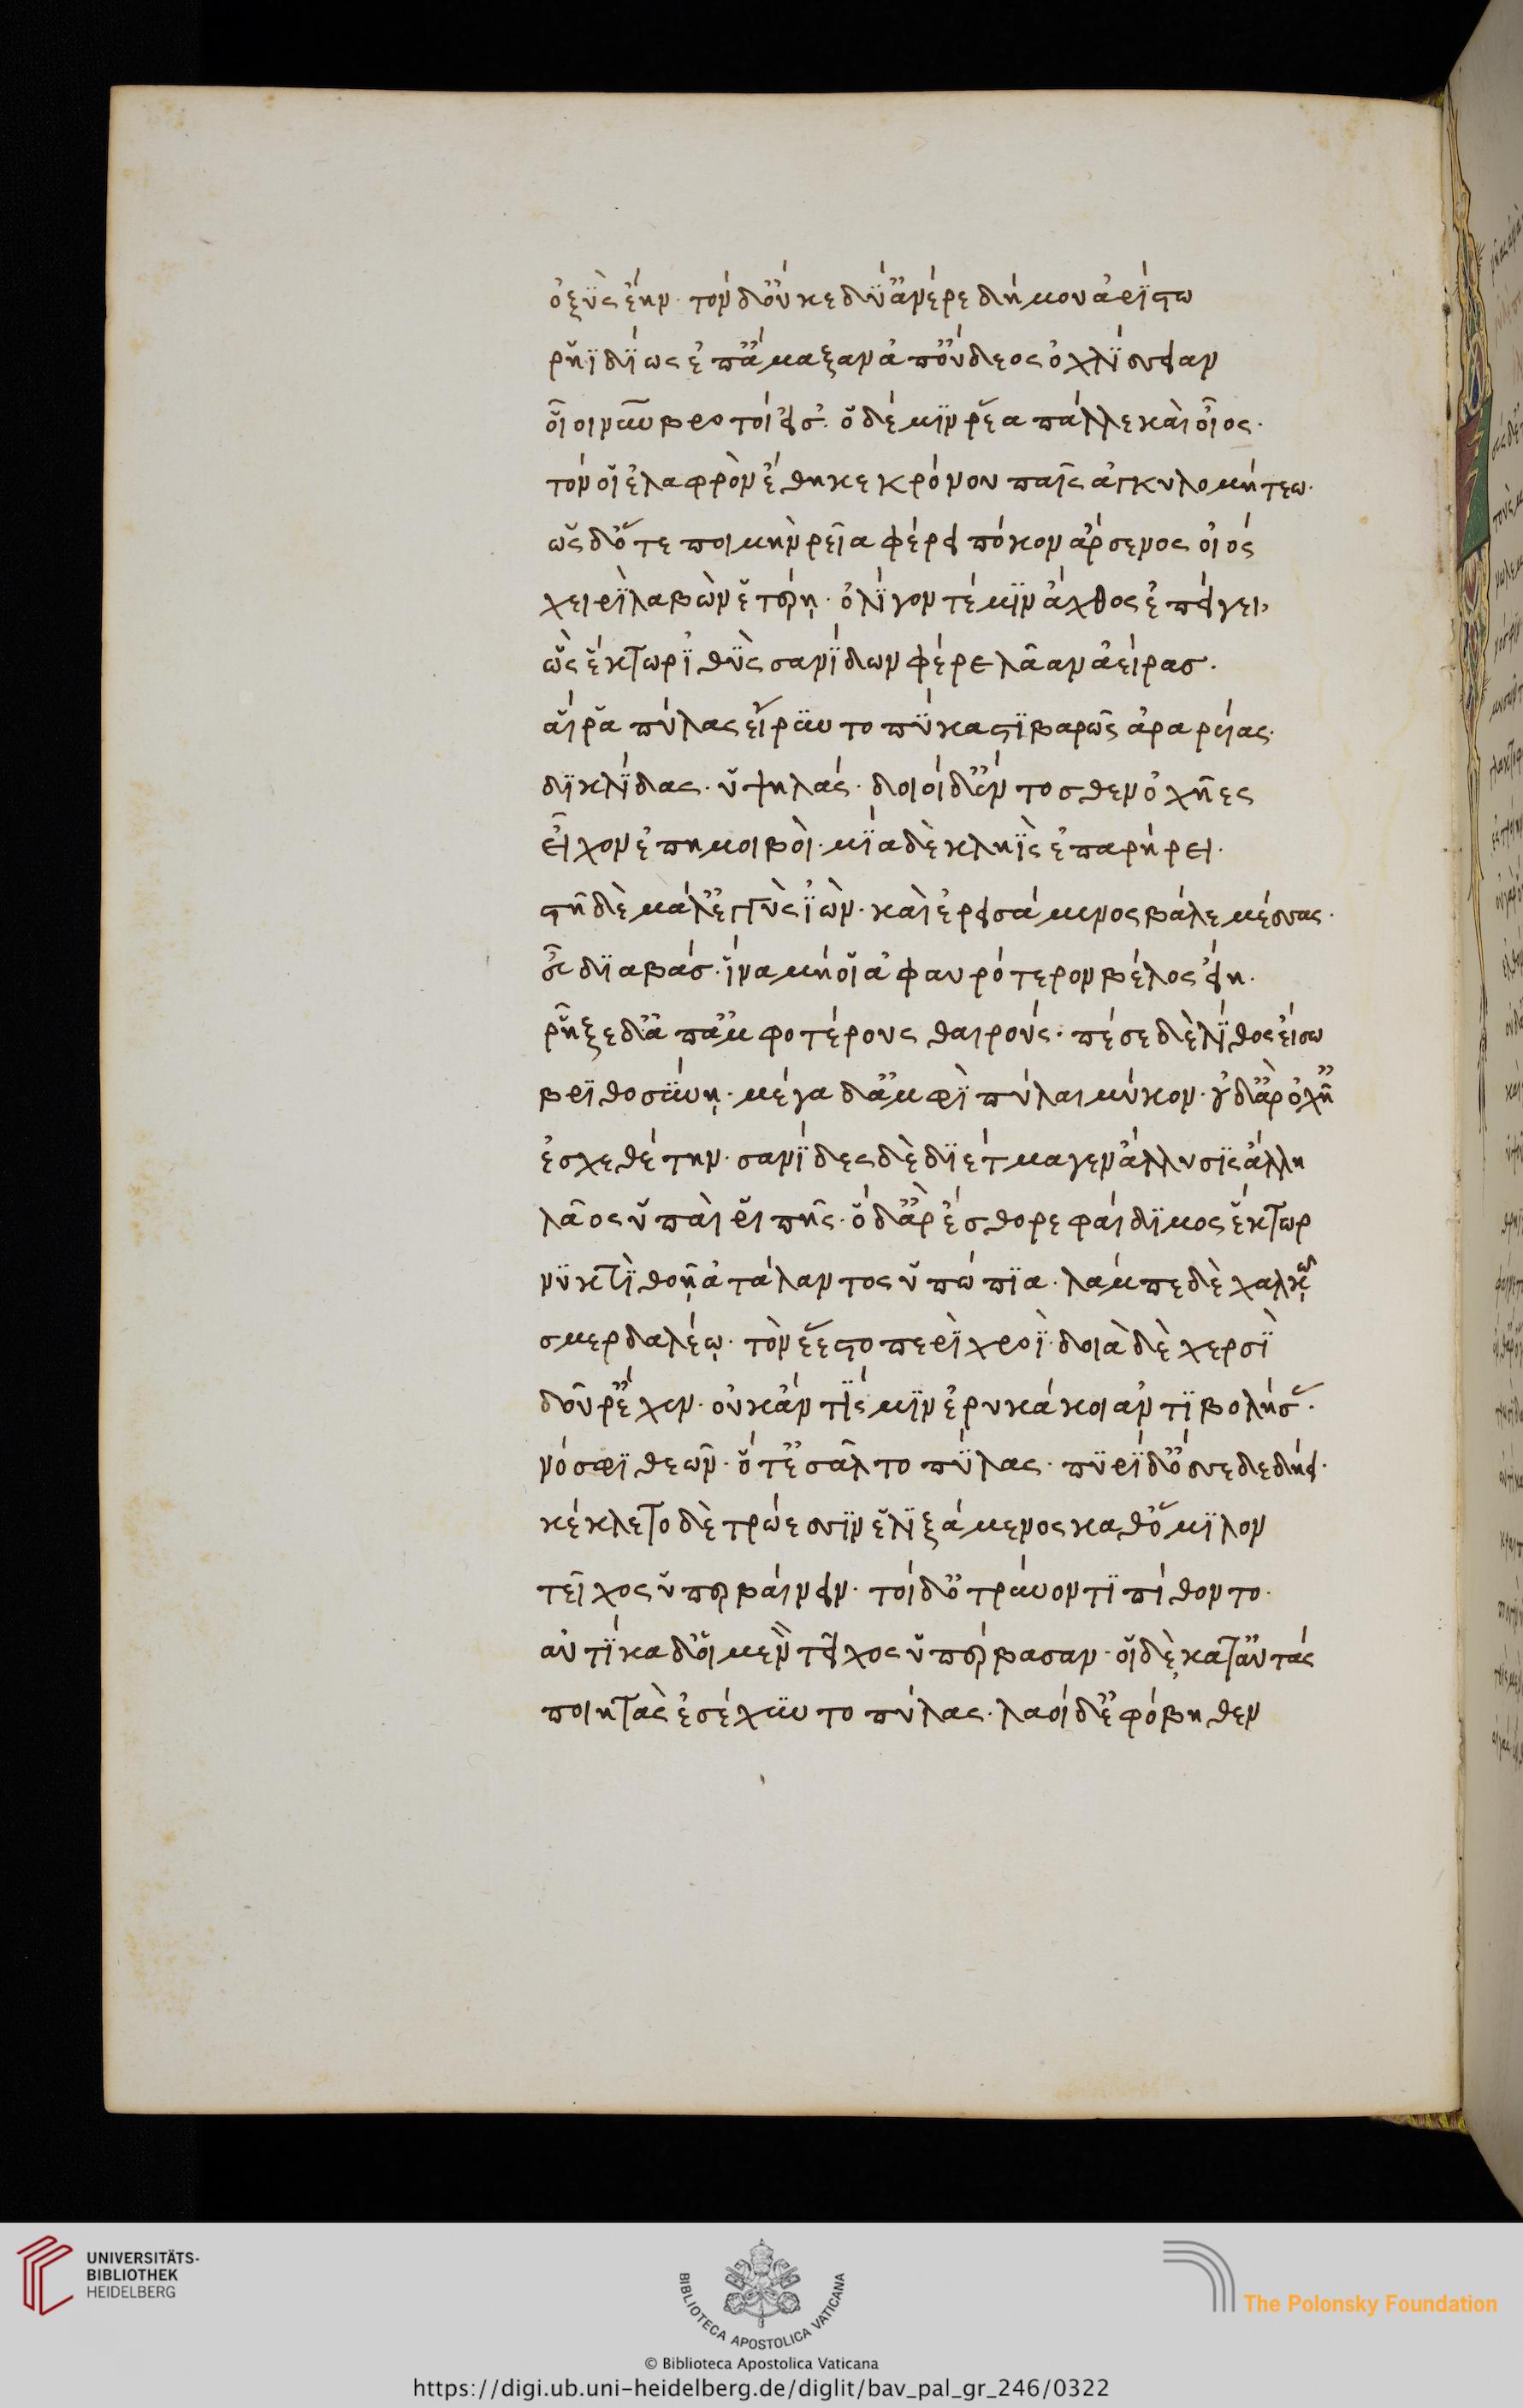 ὀξὺς ἔην· τὸν δ' οὔ κε δύ' ἀνέρε δήμου ἀρίστω
ῥηϊδίως ἐπ' ἄμαξαν ἀπ' οὔδεος ὀχλίσσειαν
οἷοι νῦν βροτοί εἰσ'· ὁ δέ μιν ῥέα πάλλε καὶ οἶος·
τόν οἱ ἐλαφρὸν ἔθηκε κρόνου παῖς ἀγκυλομήτεω·
ὡς δ' ὅτε ποιμὴν ῥεῖα φέρει πόκον ἄρσενος οἰός
χειρὶ λαβὼν ἑτέρῃ· ὀλίγον τέ μιν ἄχθος ἐπείγει,
ὣς ἕκτωρ ἰθὺς σανίδων φέρε λᾶαν ἀείρας·
αἵ ῥα πύλας εἴρυντο πύκα στιβαρῶς ἀραρείας·
δικλίδας· ὑψηλάς· δοιοὶ δ' ἔντοσθεν ὀχῆες
εἶχον ἐπημοιβοί· μία δὲ κληῒς ἐπαρήρει·
στῆ δὲ μάλ' ἐγγὺς ἰών· καὶ ἐρεισάμενος βάλε μέσσας·
εὖ διαβάς· ἵνα μή οἱ ἀφαυρότερον βέλος εἴη·
ῥῆξε δ' ἀπ' ἀμφοτέρους θαιρούς· πέσε δὲ λίθος εἴσω
βριθοσύνῃ· μέγα δ' ἀμφὶ πύλαι μύκον· οὐδ' ἄρ' ὀχῆ
ἐσχεθέτην· σανίδες δὲ διέτμαγεν ἄλλυσις ἄλλη
λᾶος ὑπαὶ ῥιπῆς· ὁ δ' ἄρ' ἔσθορε φαίδιμος ἕκτωρ
νυκτὶ θοῇ ἀτάλαντος ὑπώπια· λάμπε δὲ χαλκῷ
σμερδαλέῳ· τὸν ἕεστο περὶ χροΐ· δοιὰ δὲ χερσὶ
δοῦρ' ἔχεν· οὐκ ἄν τίς μιν ἐρυκάκοι ἀντιβολήσας·
νόσφι θεῶν· ὅτ' ἐσᾶλτο πύλας· πυρὶ δ' ὄσσε δεδήει·
κέκλετο δὲ τρώεσσιν ἑλιξάμενος καθ' ὅμιλον
τεῖχος ὑπερβαίνειν· τοὶ δ' ὀτρύνοντι πίθοντο·
αὐτίκα δ' οἱ μὲν τεῖχος ὑπέρβασαν· οἱ δὲ κατ' αὐτάς
ποιητὰς ἐσέχυντο πύλας· λαοὶ δ' ἐφόβηθεν
UNIVERSITÄTS-
BIBLIOTHEK
HEIDELBERG
BIBLIOTECA APOSTOLICA VATICANA
The Polonsky Foundation
© Biblioteca Apostolica Vaticana
https://digi.ub.uni-heidelberg.de/diglit/bav_pal_gr_246/0322